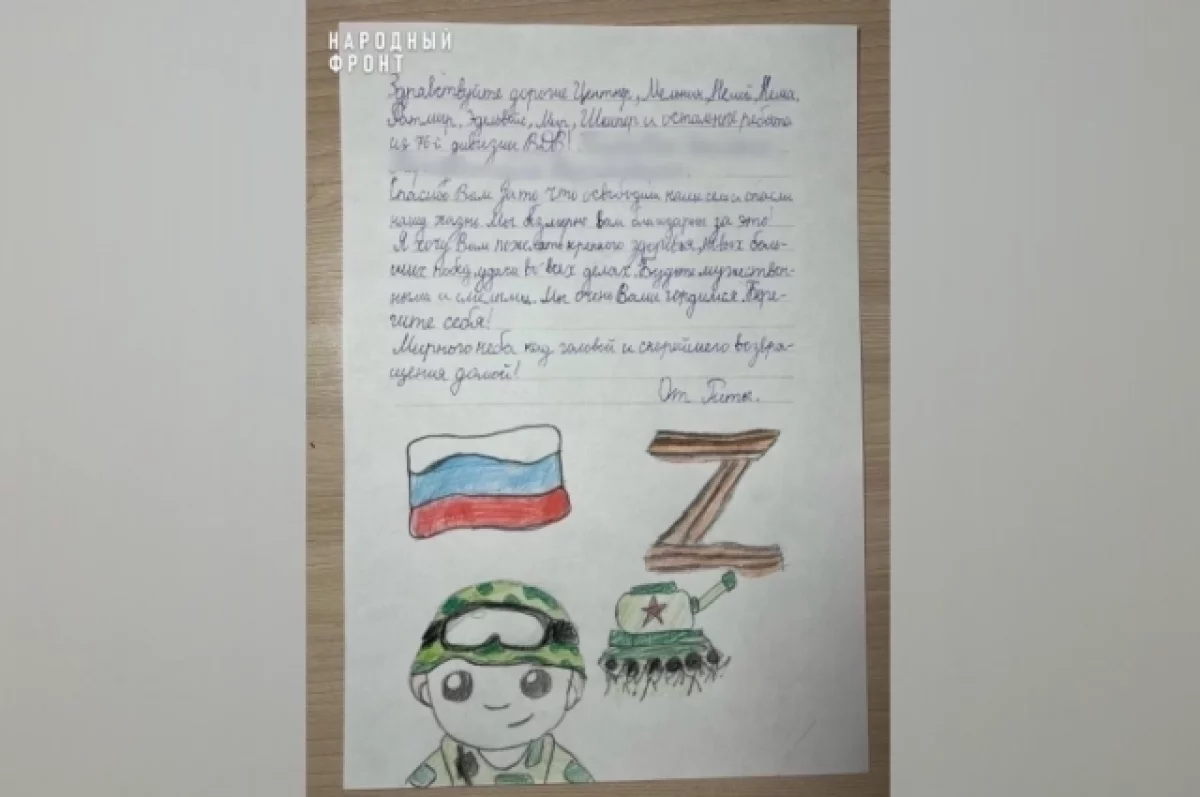 НАРОДНЫЙ
ФРОНТ
Здравствуйте дорогие Мельник,
и остальные ребята
из 76-й дивизии ВДВ!
Спасибо Вам за то что освободили наше село и спасли
нашу жизнь. Мы безмерно Вам благодарны за это!
Я хочу Вам пожелать крепкого здоровья, новых боль-
ших побед, удачи во всех делах. Будьте мужествен-
ными и смелыми. Мы очень Вами гордимся. Бере-
гите себя!
Мирного неба над головой и скорейшего возвра-
щения домой!
От
Z